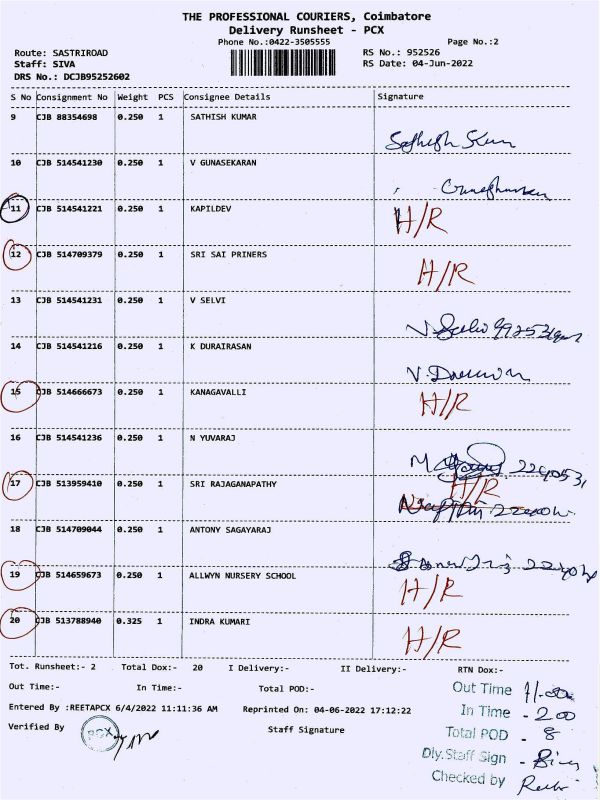 THE PROFESSIONAL COURIERS, Coimbatore
Delivery Runsheet - PCX
Phone No.:0422-3505555 Page No.:2
Route: SASTRIROAD RS No.: 952526
Staff: SIVA RS Date: 04-Jun-2022
DRS No.: DCJB95252602
S No Consignment No Weight PCS Consignee Details Signature
9 CJB 88354698 0.250 1 SATHISH KUMAR
Sathish Kum
10 CJB 514541230 0.250 1 V GUNASEKARAN
11 CJB 514541221 0.250 1 KAPILDEV H/R
12 CJB 514709379 0.250 1 SRI SAI PRINERS H/R
13 CJB 514541231 0.250 1 V SELVI
14 CJB 514541216 0.250 1 K DURAIRASAN
15 CJB 514666673 0.250 1 KANAGAVALLI H/R
16 CJB 514541236 0.250 1 N YUVARAJ
17 CJB 513959410 0.250 1 SRI RAJAGANAPATHY H/R
18 CJB 514709044 0.250 1 ANTONY SAGAYARAJ
19 CJB 514659673 0.250 1 ALLWYN NURSERY SCHOOL H/R
20 CJB 513788940 0.325 1 INDRA KUMARI H/R
Tot. Runsheet:- 2 Total Dox:- 20 I Delivery:- II Delivery:- RTN Dox:-
Out Time:- In Time:- Total POD:-
Entered By :REETAPCX 6/4/2022 11:11:36 AM Reprinted On: 04-06-2022 17:12:22
Verified By PCX Staff Signature
Out Time 11.00
In Time - 2.00
Total POD - 8
Dly.Staff Sign -
Checked by